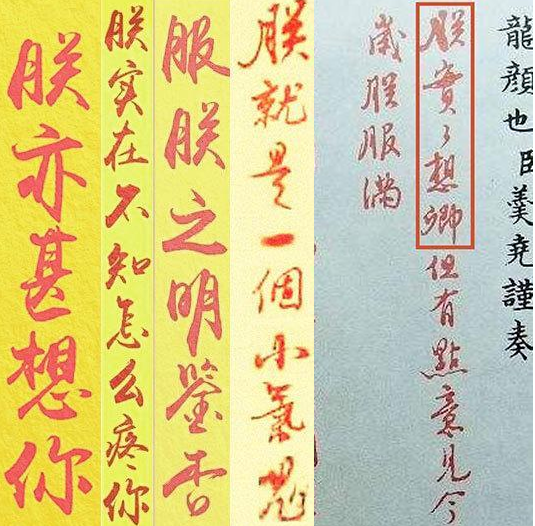 朕亦甚想你
朕实在不知怎么疼你
服朕之明鑒否
朕就是一個小氣鬼
龍顏也臣羹堯謹奏
朕實々想卿但有點意見今
歲朕服滿